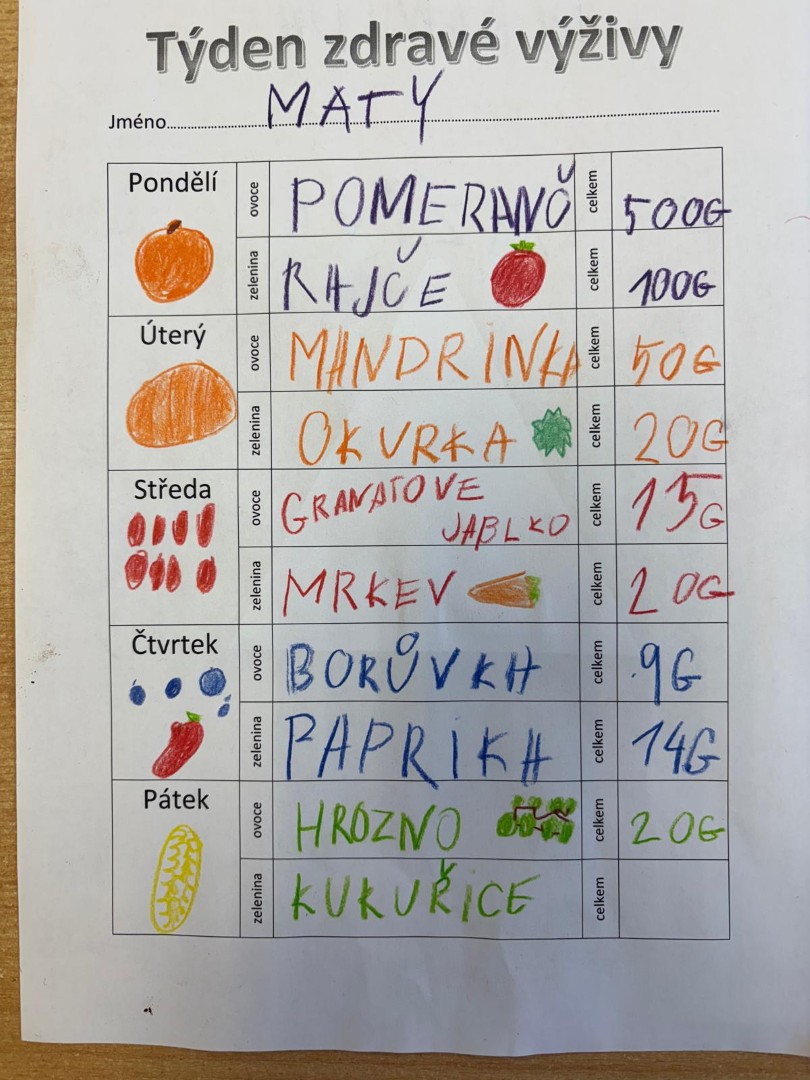 Týden zdravé výživy
Jméno MATY
Pondělí
ovoce POMERANČ celkem 500G
zelenina RAJČE celkem 100G
Úterý
ovoce MANDRINKA celkem 50G
zelenina OKVRKA celkem 20G
Středa
ovoce GRANATOVE
JABLKO celkem 15G
zelenina MRKEV celkem 20G
Čtvrtek
ovoce BORŮVKA celkem 9G
zelenina PAPRIKA celkem 14G
Pátek
ovoce HROZNO celkem 20G
zelenina KUKUŘICE celkem